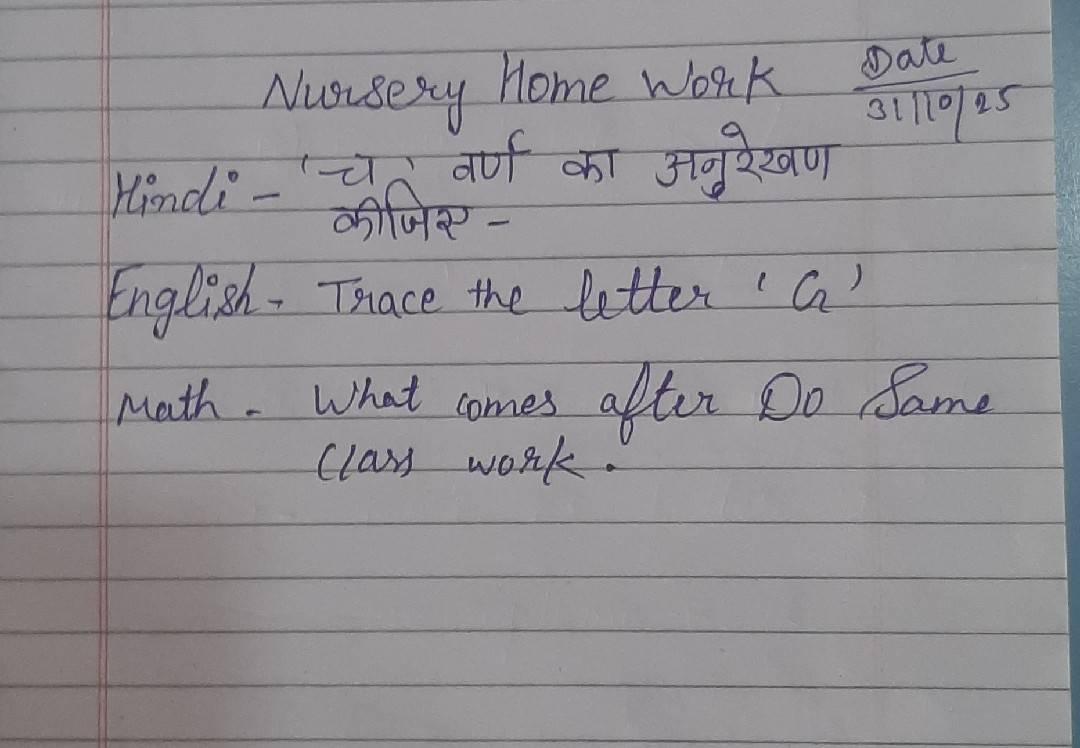 Nursery Home Work Date
31/10/25
Hindi - 'च' वर्ण का अनुरेखण
कीजिए -
English - Trace the letter 'G'
Math - What comes after Do Same
Class work.